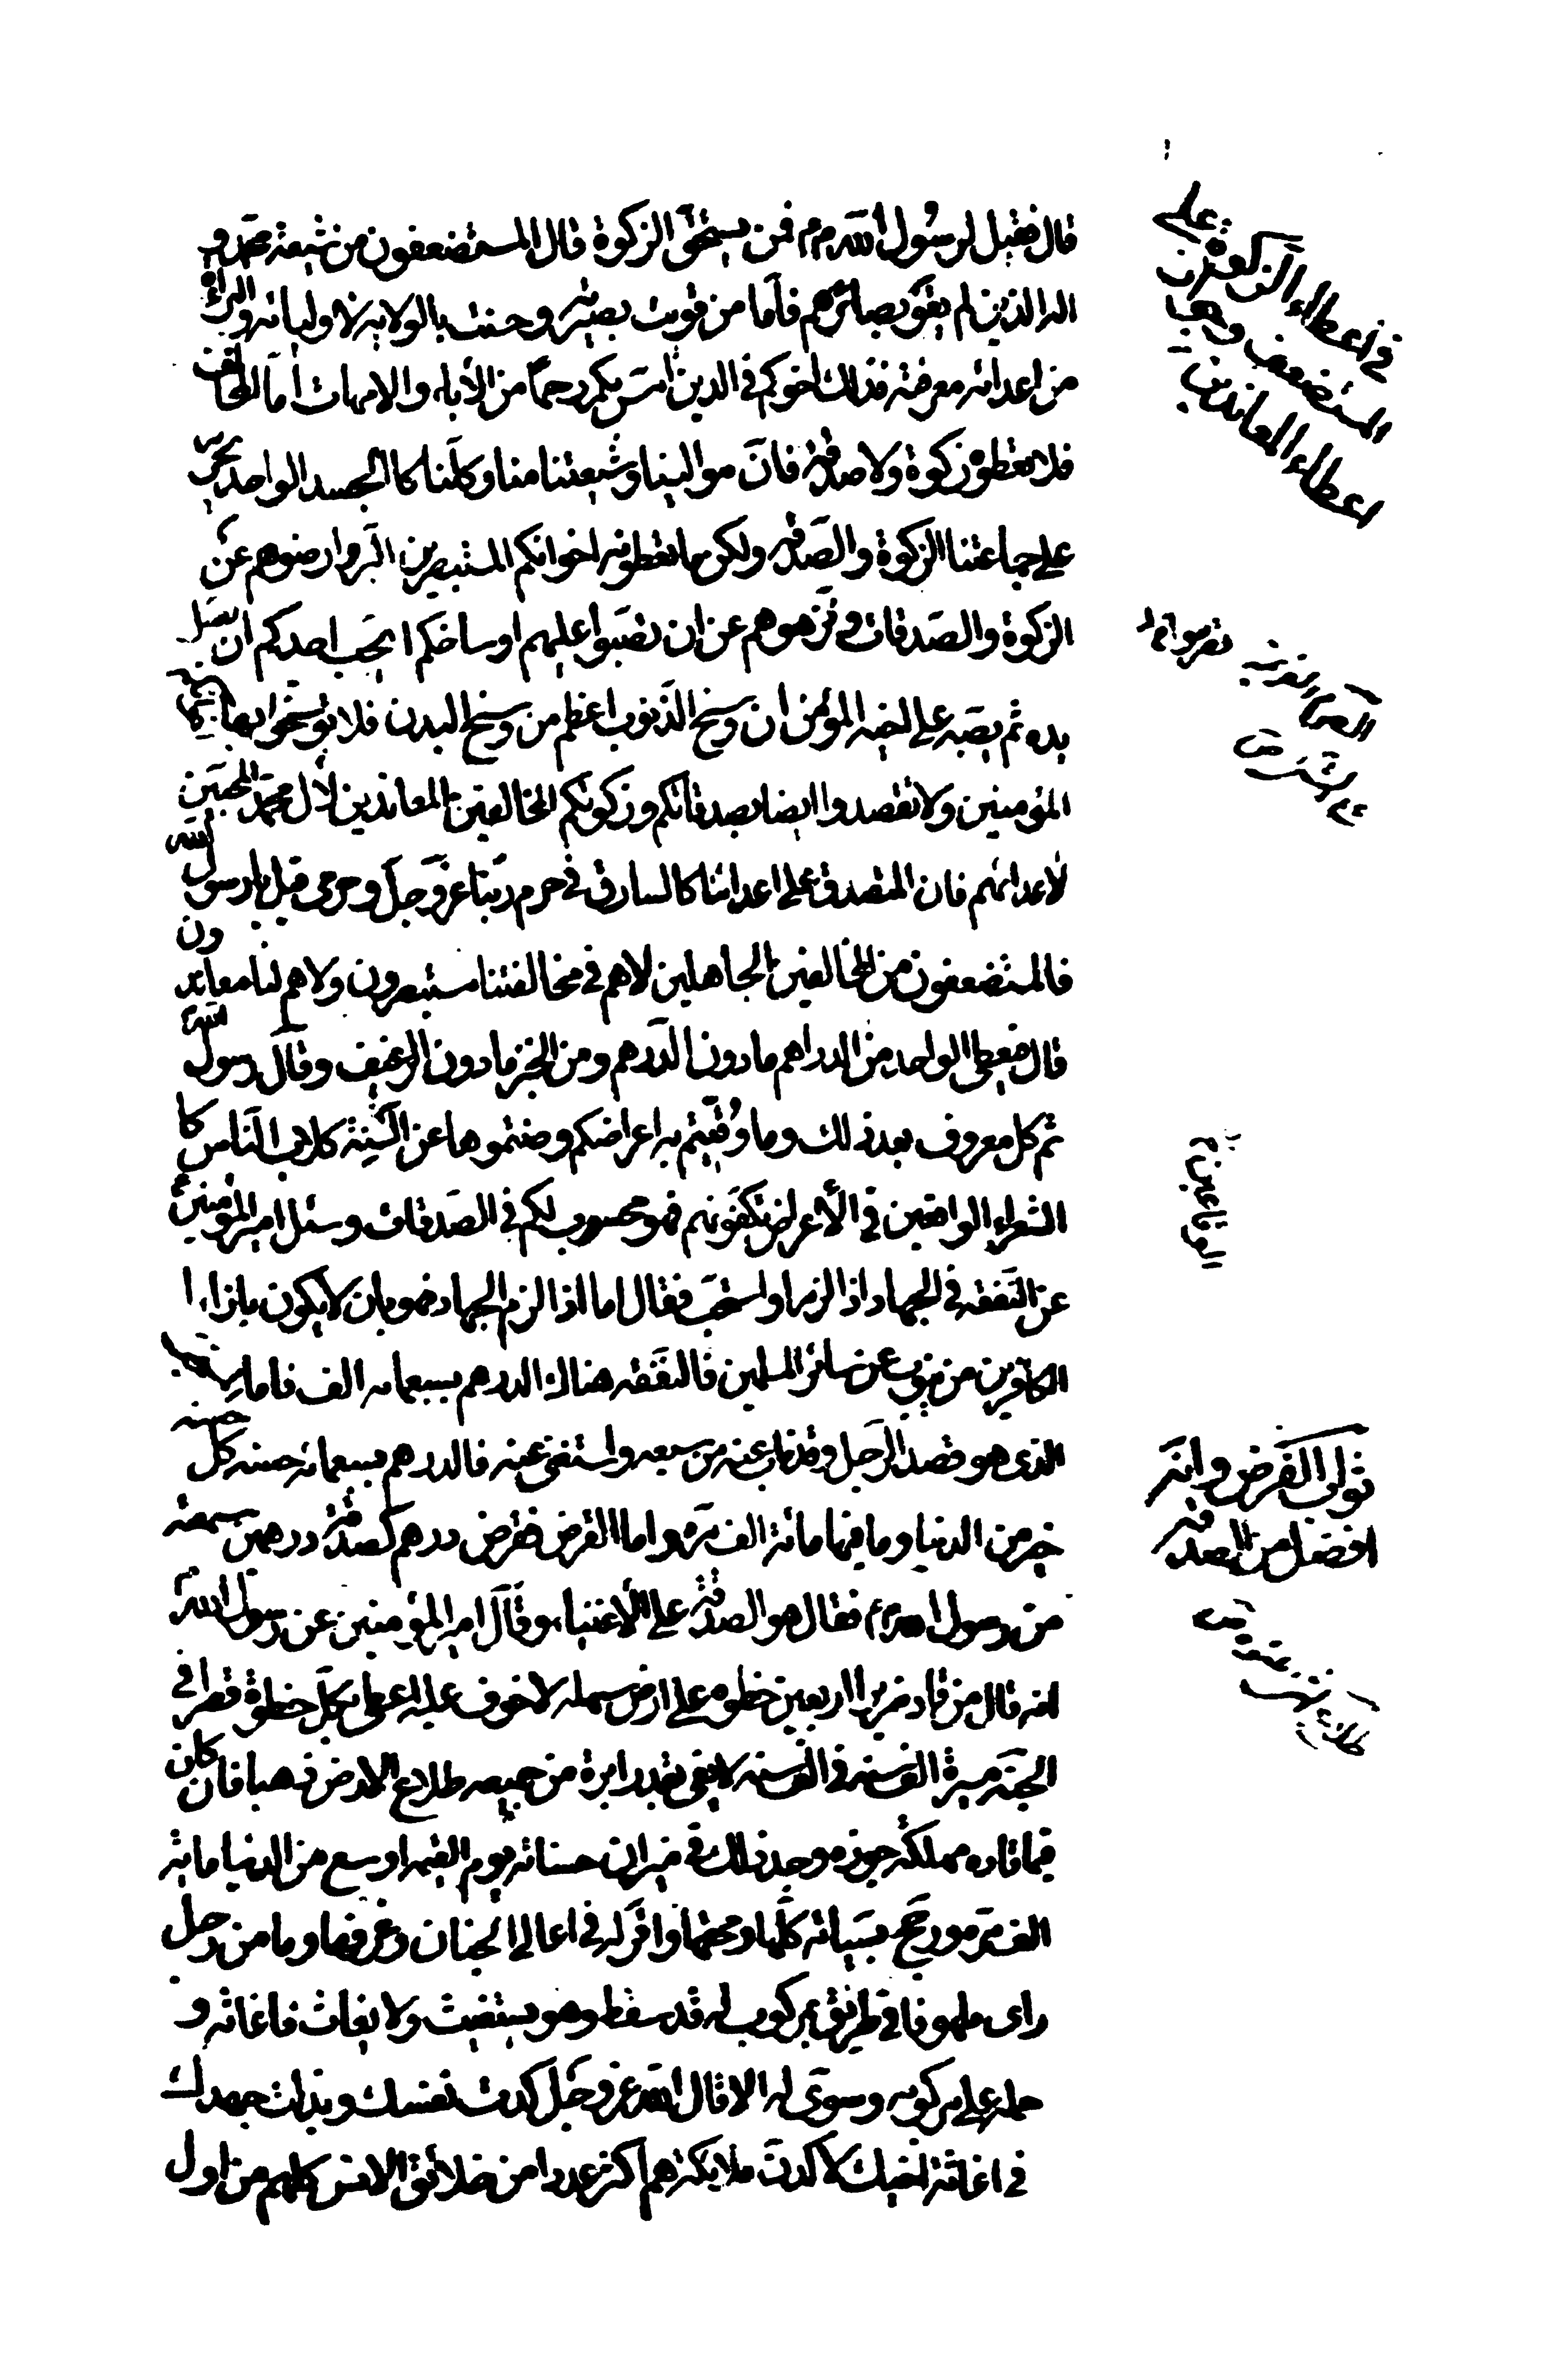 قال فقيل لرسول الله ص م فمن يستحق الزكوة قال المستضعفون من شيعة محمد و
اله الذين لم يقو بصائرهم فاما من قويت بصيرته وحسنت بالولاية لاوليائه والبراءة
من اعدائه معرفته فذاك اخوكم في الدين امس بكم رحما من الأباء والامهات اما المخالف
فلا تعطوه زكوة ولا صدقة فان موالينا وشيعتنا منا وكلنا كالجسد الواحد يحرم
على جماعتنا الزكوة والصدقة وليكن ما تعطونه اخوانكم المستبصرين البر وارفعوهم عن
الزكوة والصدقات ونزهوهم عن ان تصبوا عليهم اوساخكم ايحب احدكم ان يغسل
يده ثم يصبه على اخيه المؤمن ان وسخ الذنوب اعظم من وسخ البدن فلا توسخوا بها
المؤمنين ولا تقصدوا ايضا بصدقاتكم وزكوتكم المخالفين المعاندين لأل محمد المحبين
لأعدائهم فان المتصدق على اعدائنا كالسارق في حرم ربنا عز وجل وحرمي قيل يا رسول الله
فالمستضعفون من المخالفين الجاهلين لا هم في مخالفتنا مستبصرون ولا هم لنا معاندون
قال فيعطى الواحد من الدراهم ما دون الدرهم ومن الخبز ما دون الرغيف وقال رسول الله
ثم كل معروف بعد ذلك وما وقيتم به اعراضكم وصنتموها عن السنة كلاب الناس كا
الشعراء الواقعين في الأعراض تكفونهم فهو محسوب لكم في الصدقات وسئل امير المؤمنين ع
عن النفقة في الجهاد اذا لزم او استحب فقال اما اذا لزم الجهاد فهو بان لا يكون بازاء ا
الكافرين من ينوب عن سائر المسلمين فالنفقة هناك الدرهم بسبعمائه الف فاما
الذي هو قصد الرجل وقد ناب عنه من سبقه واستغنى عنه فالدرهم بسبعمائة حسنه كل حسنه
خير من الدنيا وما فيها مائة الف مرة واما القرض فقرض درهم كصدقة درهمين سمعته
من رسول الله ص فقال هو الصدقة على الأغنياء وقال امير المؤمنين عن رسول الله ص
انه قال من قاد ضريرا اربعين خطوه على ارض سهله لا خوف عليه اعطي بكل خطوة قصرا في
الجنة مسيرة الف سنة في الف سنه لا يفي بقدر ابرة من جميعه طلاع الارض ذهبا فان كان
فيما قاده مهلكة جوزه وجد ذلك في ميزان حسناته يوم القيمه اوسع من الدنيا مائة
الف مرة ورجح بسيئاته كلها ومحقها وانزله في اعالي الجنان وغرفها وما من رجل
راى ملهوفا في طريق بمركوب له قد سقط وهو يستغيث ولا يغاث فاغاثه و
حمله على مركوبه وسوى له الا قال الله عز وجل كددت نفسك وبذلت جهدك
في اغاثة اخيك لاكدن ملائكة هم اكثر عددا من خلائق الانس كلهم من اول
في اعطاء الزكوة على
المستضعف وهي
اعطاء المعاندين
الوقاعين
ثواب القرض وانه
افضل من الصدقة